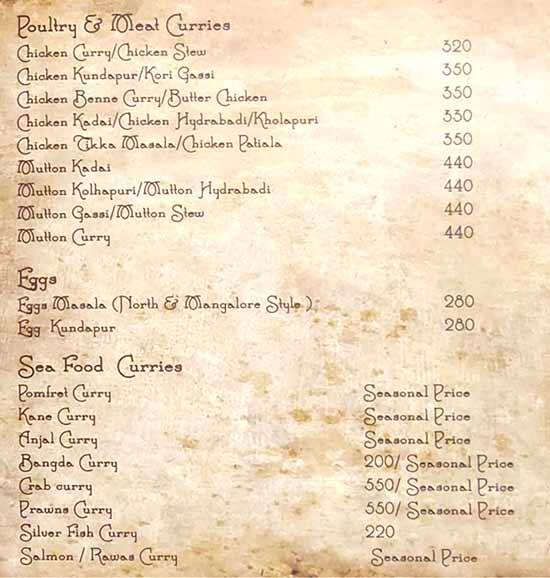 Poultry & Meat Curries
Chicken Curry/Chicken Stew 320
Chicken Kundapur/Kori Gassi 350
Chicken Benne Curry/Butter Chicken 350
Chicken Kadai/Chicken Hydrabadi/Kholapuri 330
Chicken Tikka Masala/Chicken Patiala 350
Mutton Kadai 440
Mutton Kolhapuri/Mutton Hydrabadi 440
Mutton Gassi/Mutton Stew 440
Mutton Curry 440
Eggs
Eggs Masala (North & Mangalore Style ) 280
Egg Kundapur 280
Sea Food Curries
Pomfret Curry Seasonal Price
Kane Curry Seasonal Price
Anjal Curry Seasonal Price
Bangda Curry 200/ Seasonal Price
Crab curry 550/ Seasonal Price
Prawns Curry 550/ Seasonal Price
Silver Fish Curry 220
Salmon / Rawas Curry Seasonal Price